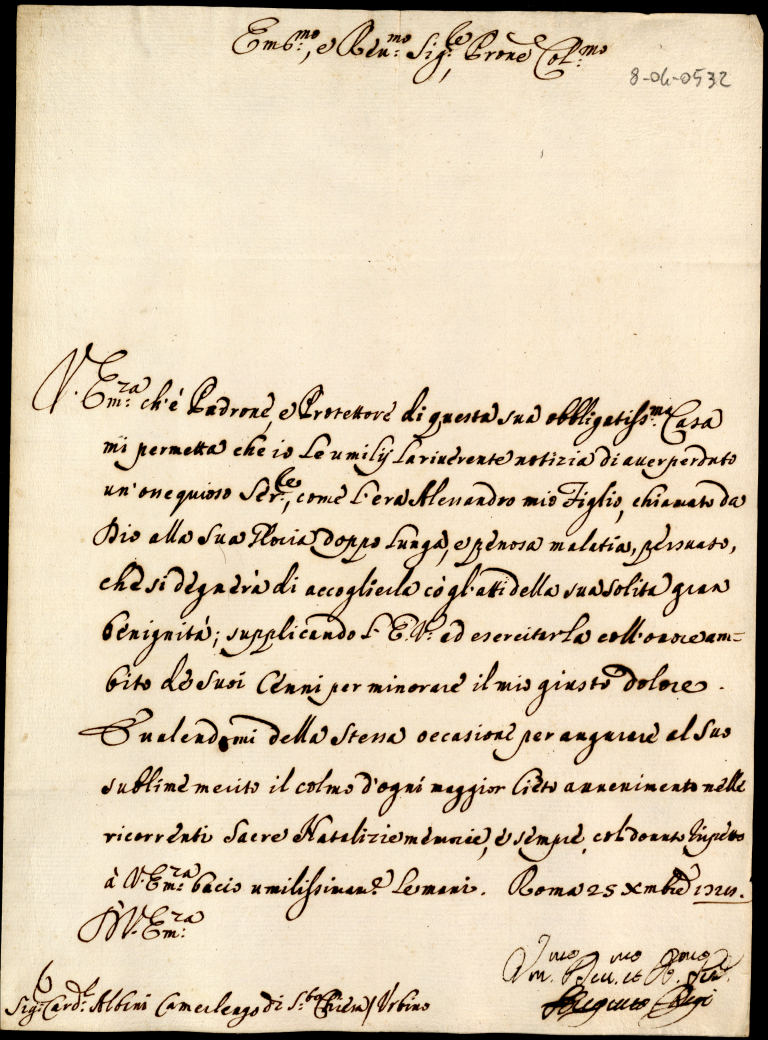 Em̃o:, e Reu.mo Sig.re Prone Col.mo
8-06-0532
V. Em.za ch'è Padrone, e Protettore di questa sua obbligatiss.ma Casa
mi permetta che io Le umilij La riuerente notizia di auer perduto
un' ossequioso Ser.re, come L'era Alessandro mio Figlio, chiamato da
Dio alla Sua Gloria doppo Lunga, e penosa malatia, persuaso,
che si degnerà di accoglierla cògl'atti della sua solita gran
benignità; supplicando L'E.V. ad esercitarla coll'onore am=
bito de suoi Cenni per minorare il mio giusto dolore.
E ualendomi della stessa occasione per augurare al suo
sublime merito il colmo d'ogni maggior lieto auuenimento nelle
ricorrenti Sacre Natalizie memorie, e sempre, col douuto rispetto
à V. Em.za bacio umilissimam.e Le mani. Roma 25 Xmbre
D V. Em.za
Sig.r Card.le Albini Camerlengo di S.ta Chiesa / Urbino